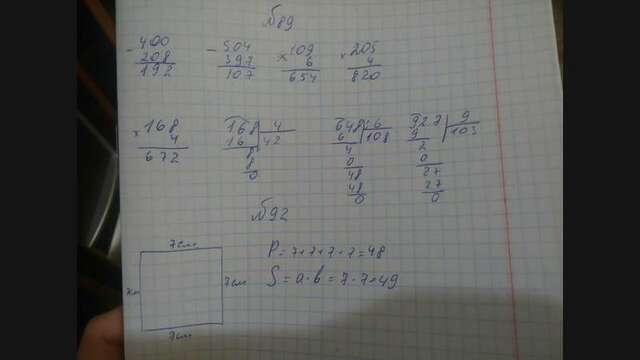 №89
- 400 - 504 × 109 × 205
208 397 6 4
192 107 654 820
× 168 168 | 4 648 | 6 927 | 9
4 16 | 42 6 | 108 9 | 103
672 8 4 2
8 0 0
0 48 27
48 27
0 0
№92
7см
P = 7+7+7+7=48
7см
S = a·b = 7·7=49
7см